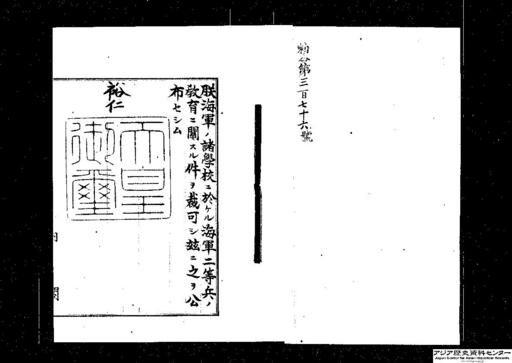 勅令第三百七十六號
朕海軍ノ諸學校ニ於ケル海軍二等兵ノ
敎育ニ關スル件ヲ裁可シ玆ニ之ヲ公
布セシム
裕仁
天皇
御璽
内
閣
アジア歴史資料センター
Japan Center for Asian Historical Records